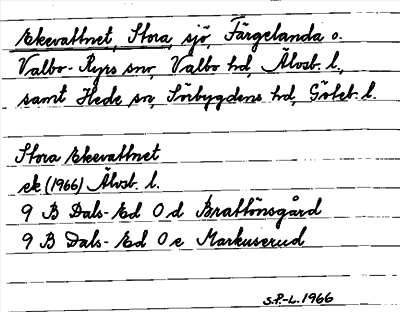 Ekevattnet, Stora, sjö, Färgelanda o.
Valbo-Ryrs snr, Valbo hd, Älvsb. l.,
samt Hede sn, Sörbygdens hd, Göteb. l.
Stora Ekevattnet
ek (1966) Älvsb. l.
9 B Dals-Ed 0 d Brattönsgård
9 B Dals-Ed 0 e Markuserud
S.P.-L. 1966